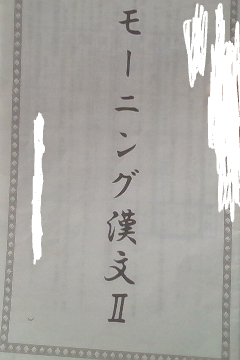 モーニング漢文Ⅱ